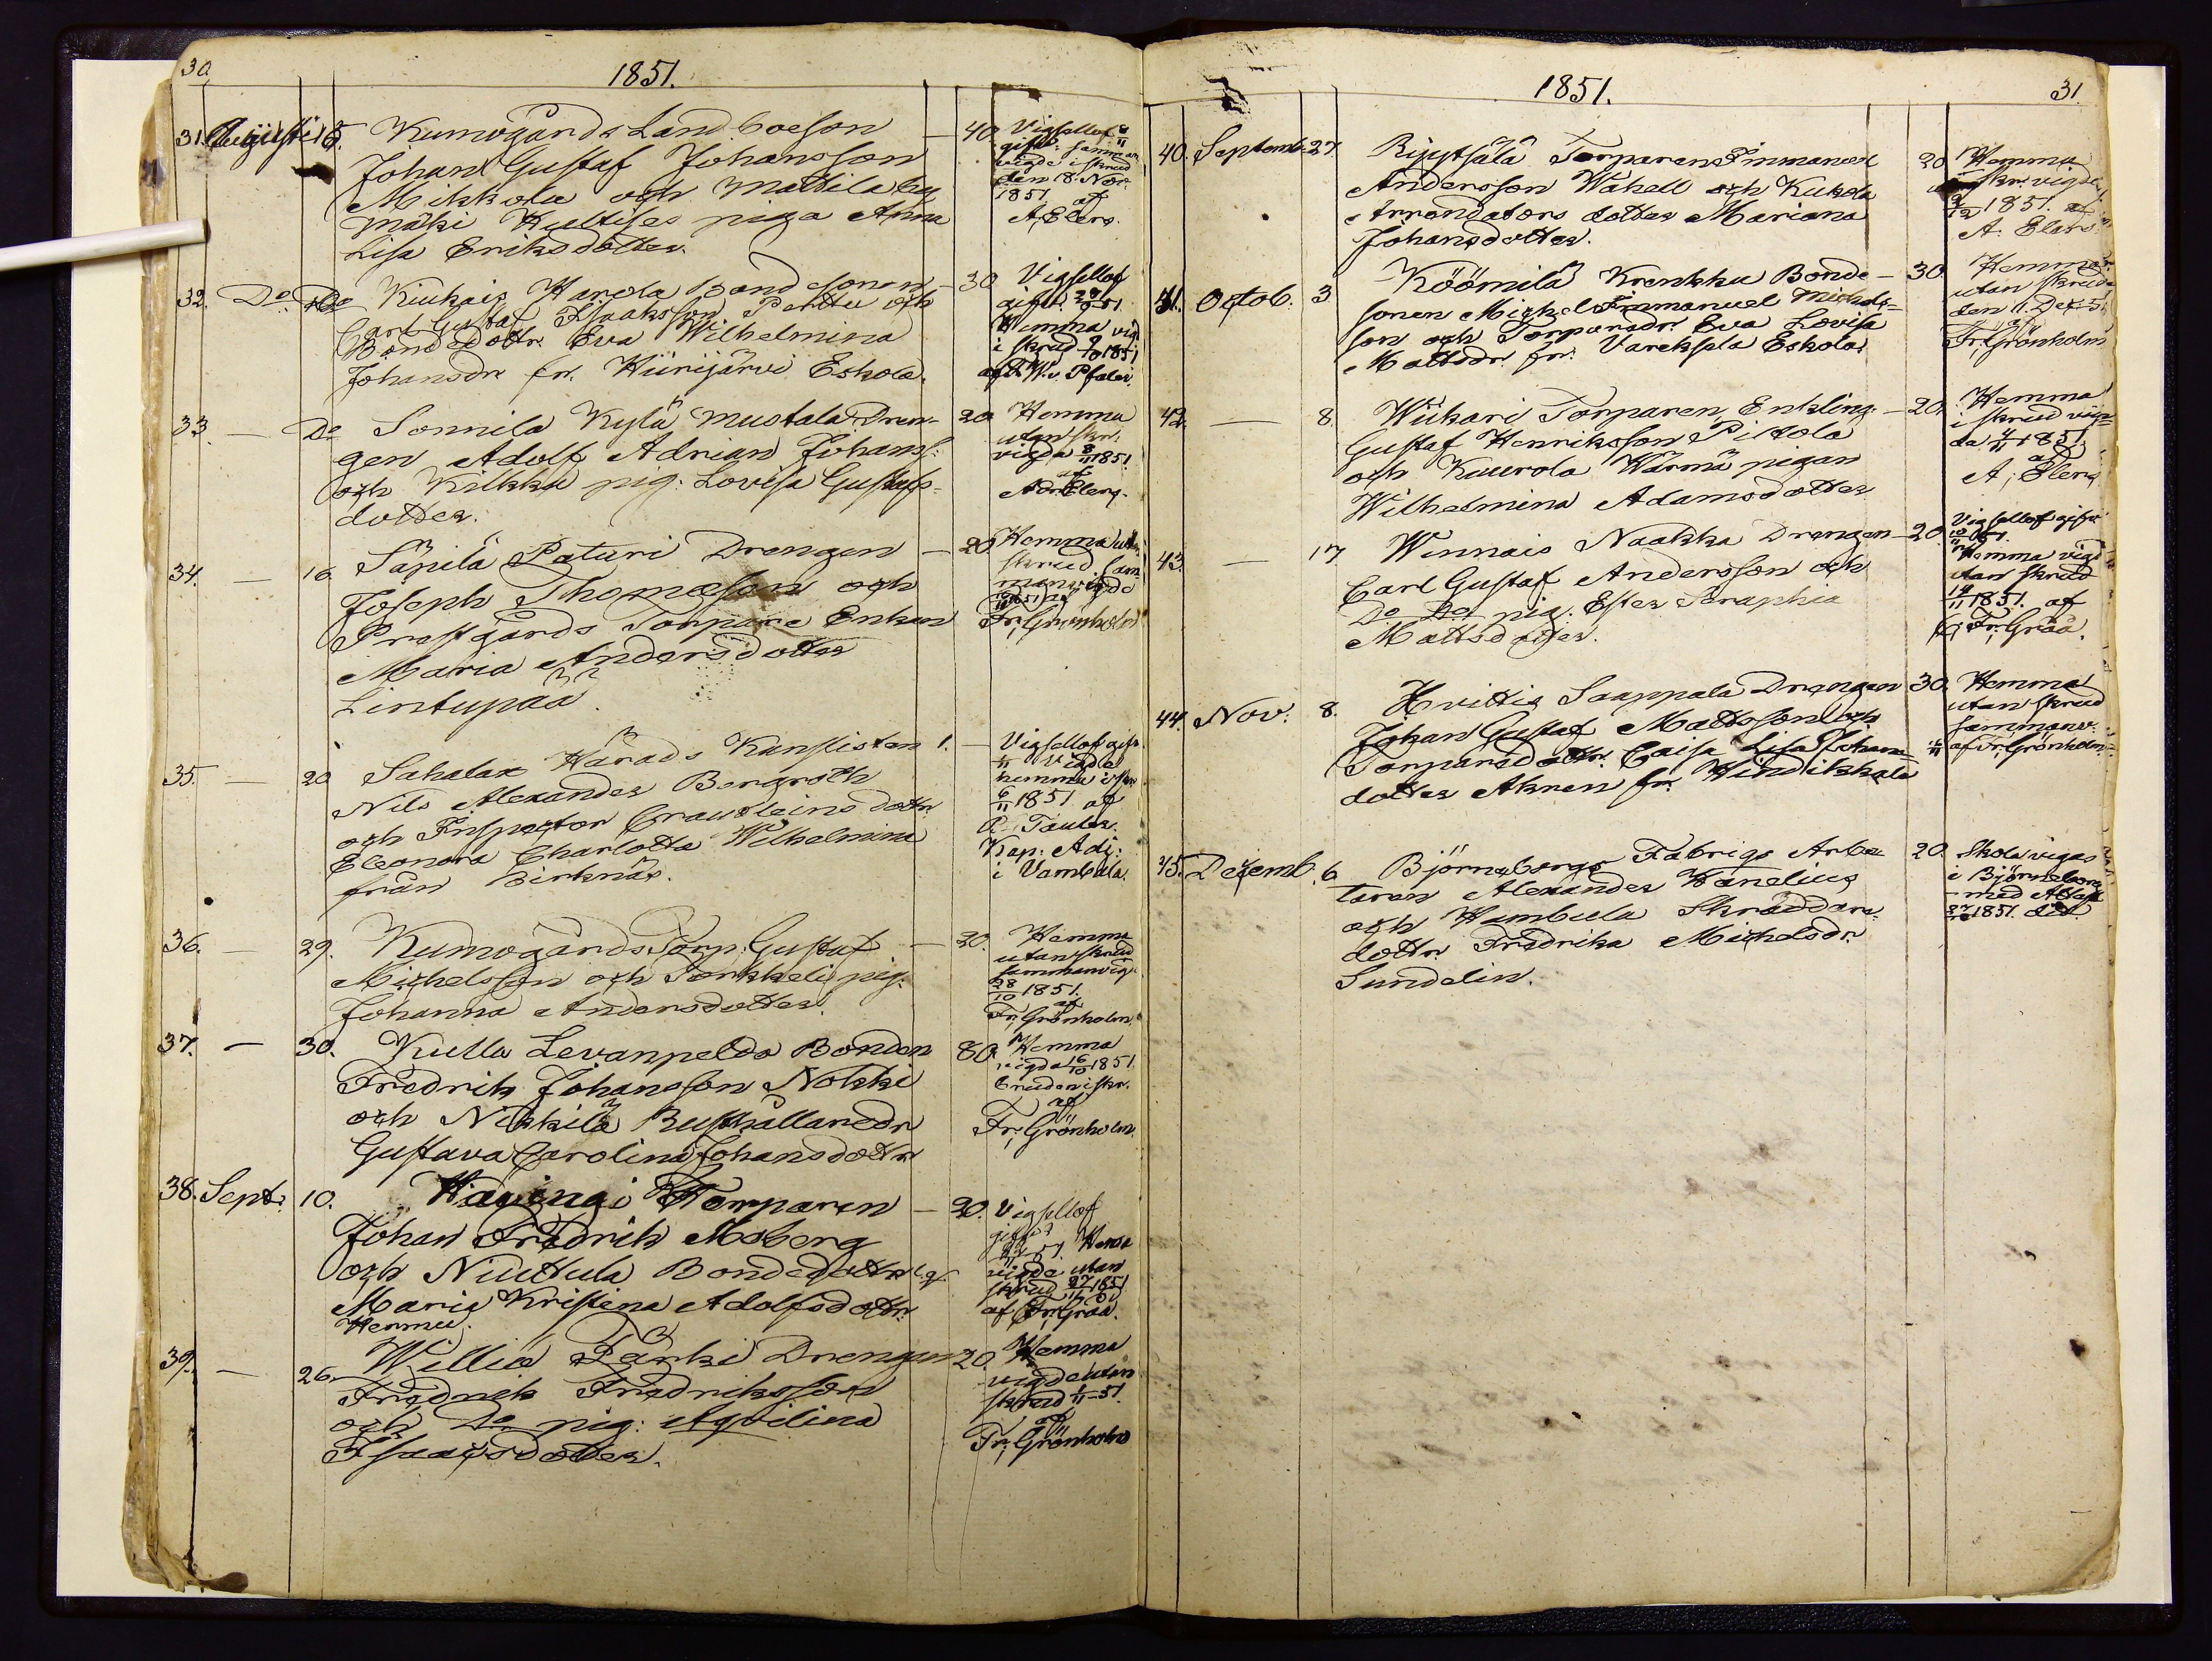 30
1851.
31. Augusti 15. Kumogårds Landboeson — 40.
Johan Gustaf Johansson
Mikkola och Mattila by
mäki Kultises piga Anna
Lisa Eriksdotter.
Vigsellof
gifvit
vigde i skrud
den 18. Nov.
1851
af
A, Elers.
32. Do Do Kiukais Harola Bondsonen — 30
Carl Gustaf Isaksson Perttu och
Bondedottr. Eva Wilhelmina
Johansdr. fr. Hiirijärvi Eskola.
Vigsellof
gifvit
Hemma vigd.
i skrud 9/10 1851
af W. v. Pfaler.
33. — Do Sonnila Kylä Mustala Dren- 20
gen Adolf Adrian Johanss:
och Kilkku pig: Lovisa Gustafs-
dotter.
Hemma
utan skr.
vigda 8/11 1851.
af
Adr. Elers.
34. — 16. Säpilä Paturi Drengen — 20
Joseph Thomasson och
Prestgårds Torpare Enkan
Maria Andersdotter
Lintupää.
Hemma utan
skrud sam
manvigde
1851
Fr, Grönholm
35. — 20 Sahalax Härads Kanslisten 1. —
Nils Alexander Bergroth
och Inspector dottr.
Eleonora Charlotta Wilhelmina
från Birknäs.
Vigsellof gifv.
vigde
hemma i skr.
6/11 1851 af
Tauler.
Kap: Adj:
i Vambula.
36. — 29. Kumogårds Torp: Gustaf — 30.
Michelsson och Sonkkeli pig:
Johanna Andersdotter.
Hemma
utan skrud
sammanvigd
28/10 1851.
af
Fr, Grönholm.
37. — 30. Kulla Levanpelda Bonden 80.
Fredrik Johansson Nokki
och Nikkilä Rusthållaredr
Gustava Carolina Johansdottr
Hemma
vigda 16/10 1851.
bruden i skr.
af
Fr, Grönholm.
38. Sept. 10. Torparen — 30.
Johan Fredrik Moberg
och Niuttula Bondedottr
Maria Kristina Adolfsdottr.
Hermu.
Vigsellof
gifvit
51. Hema
vigda utan
skrud 27/11 1851
af Fr, Gråå.
39. — 26. Willio Pärki Drengen 20.
Fredrik Fredriksson
och Do pig: Aqvilina
Isaacsdotter.
Hemma
vigde utan
skrud 51.
af
Fr, Grönholm
1851.
31.
40. Septemb. 27. Torparen Immanuel 20
Andersson Wahell och Kukola
Arrendators dotter Mariana
Johansdotter.
Hemma
skr. vigde
1851. af
A. Elers
41. Octob. 3. Köömilä Krenkku Bonde — 30.
sonen Michel Immanuel Michels-
son och Torparedr. Eva Lovisa
Mattsdr. fr. Eskola.
Hemma
utan skrud
den
af
Fr, Grönholm
42. — 8. Wiikari Torparen Enkling — 20.
Gustaf Henriksson Pictola
och Kuurola Wärmä pigan
Wilhelmina Adamsdotter
Hemma
i skrud vig-
da 4/11 1851
af
A, Elers
43. — 17 Winnais Naakka Drengen — 20.
Carl Gustaf Andersson och
Do Do pig. Ester Seraphia
Mattsdotter.
Vigsellof gifvit
Hemma vigd
utan skrud
1851. af
Fr, Gråå.
44. Nov. 8. Hvittis Saappala Drengen 30.
Johan Gustaf Mattsson och
Torparedottr. Caisa Lisa Johans-
dotter Akren fr. Hindikkala
Hemma
utan skrud
sammanv.
af Fr, Grönholm.
45. Dezemb. 6. Björneborgs Fabriqs Arbe- 20.
taren Alexander Wanelius
och Wambula Skräddare
dottr. Fredrika Michelsdr.
Sundelin.
Skola vigas
i Björneborg
med Attest
1851.